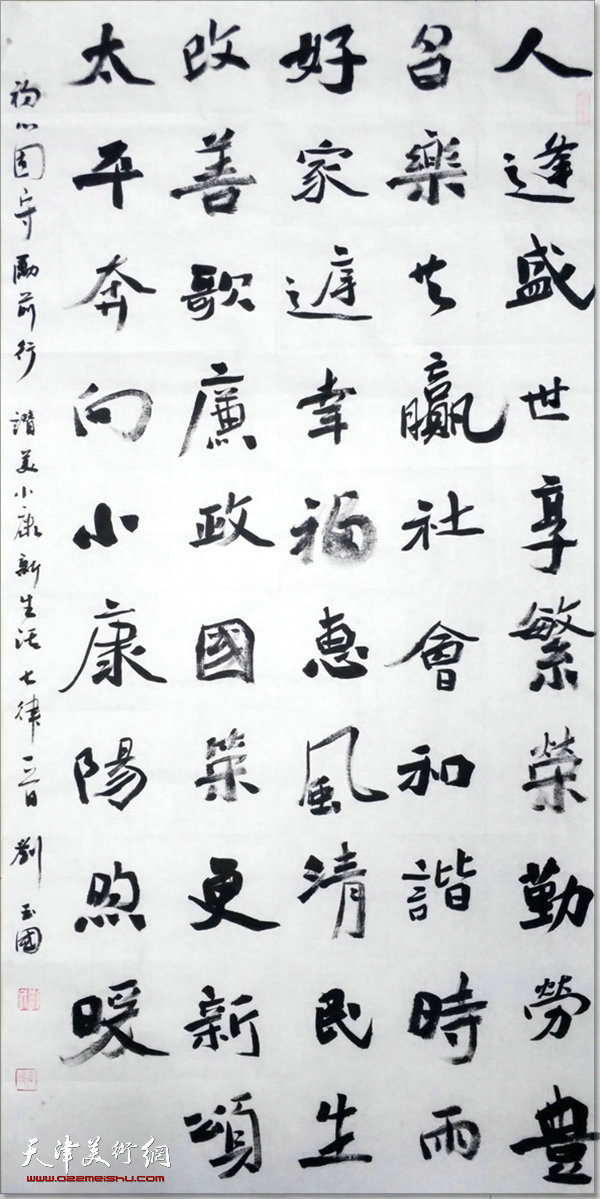 人逢盛世享繁榮勤勞豊
樂共贏社會和諧時雨
好家庭幸福惠風清民生
改善歌廉政國策更新頌
太平奔向小康陽煦暖
初心固守勵前行 讃美小康新生活七律一首 劉玉國
天津美術網
www.022meishu.com